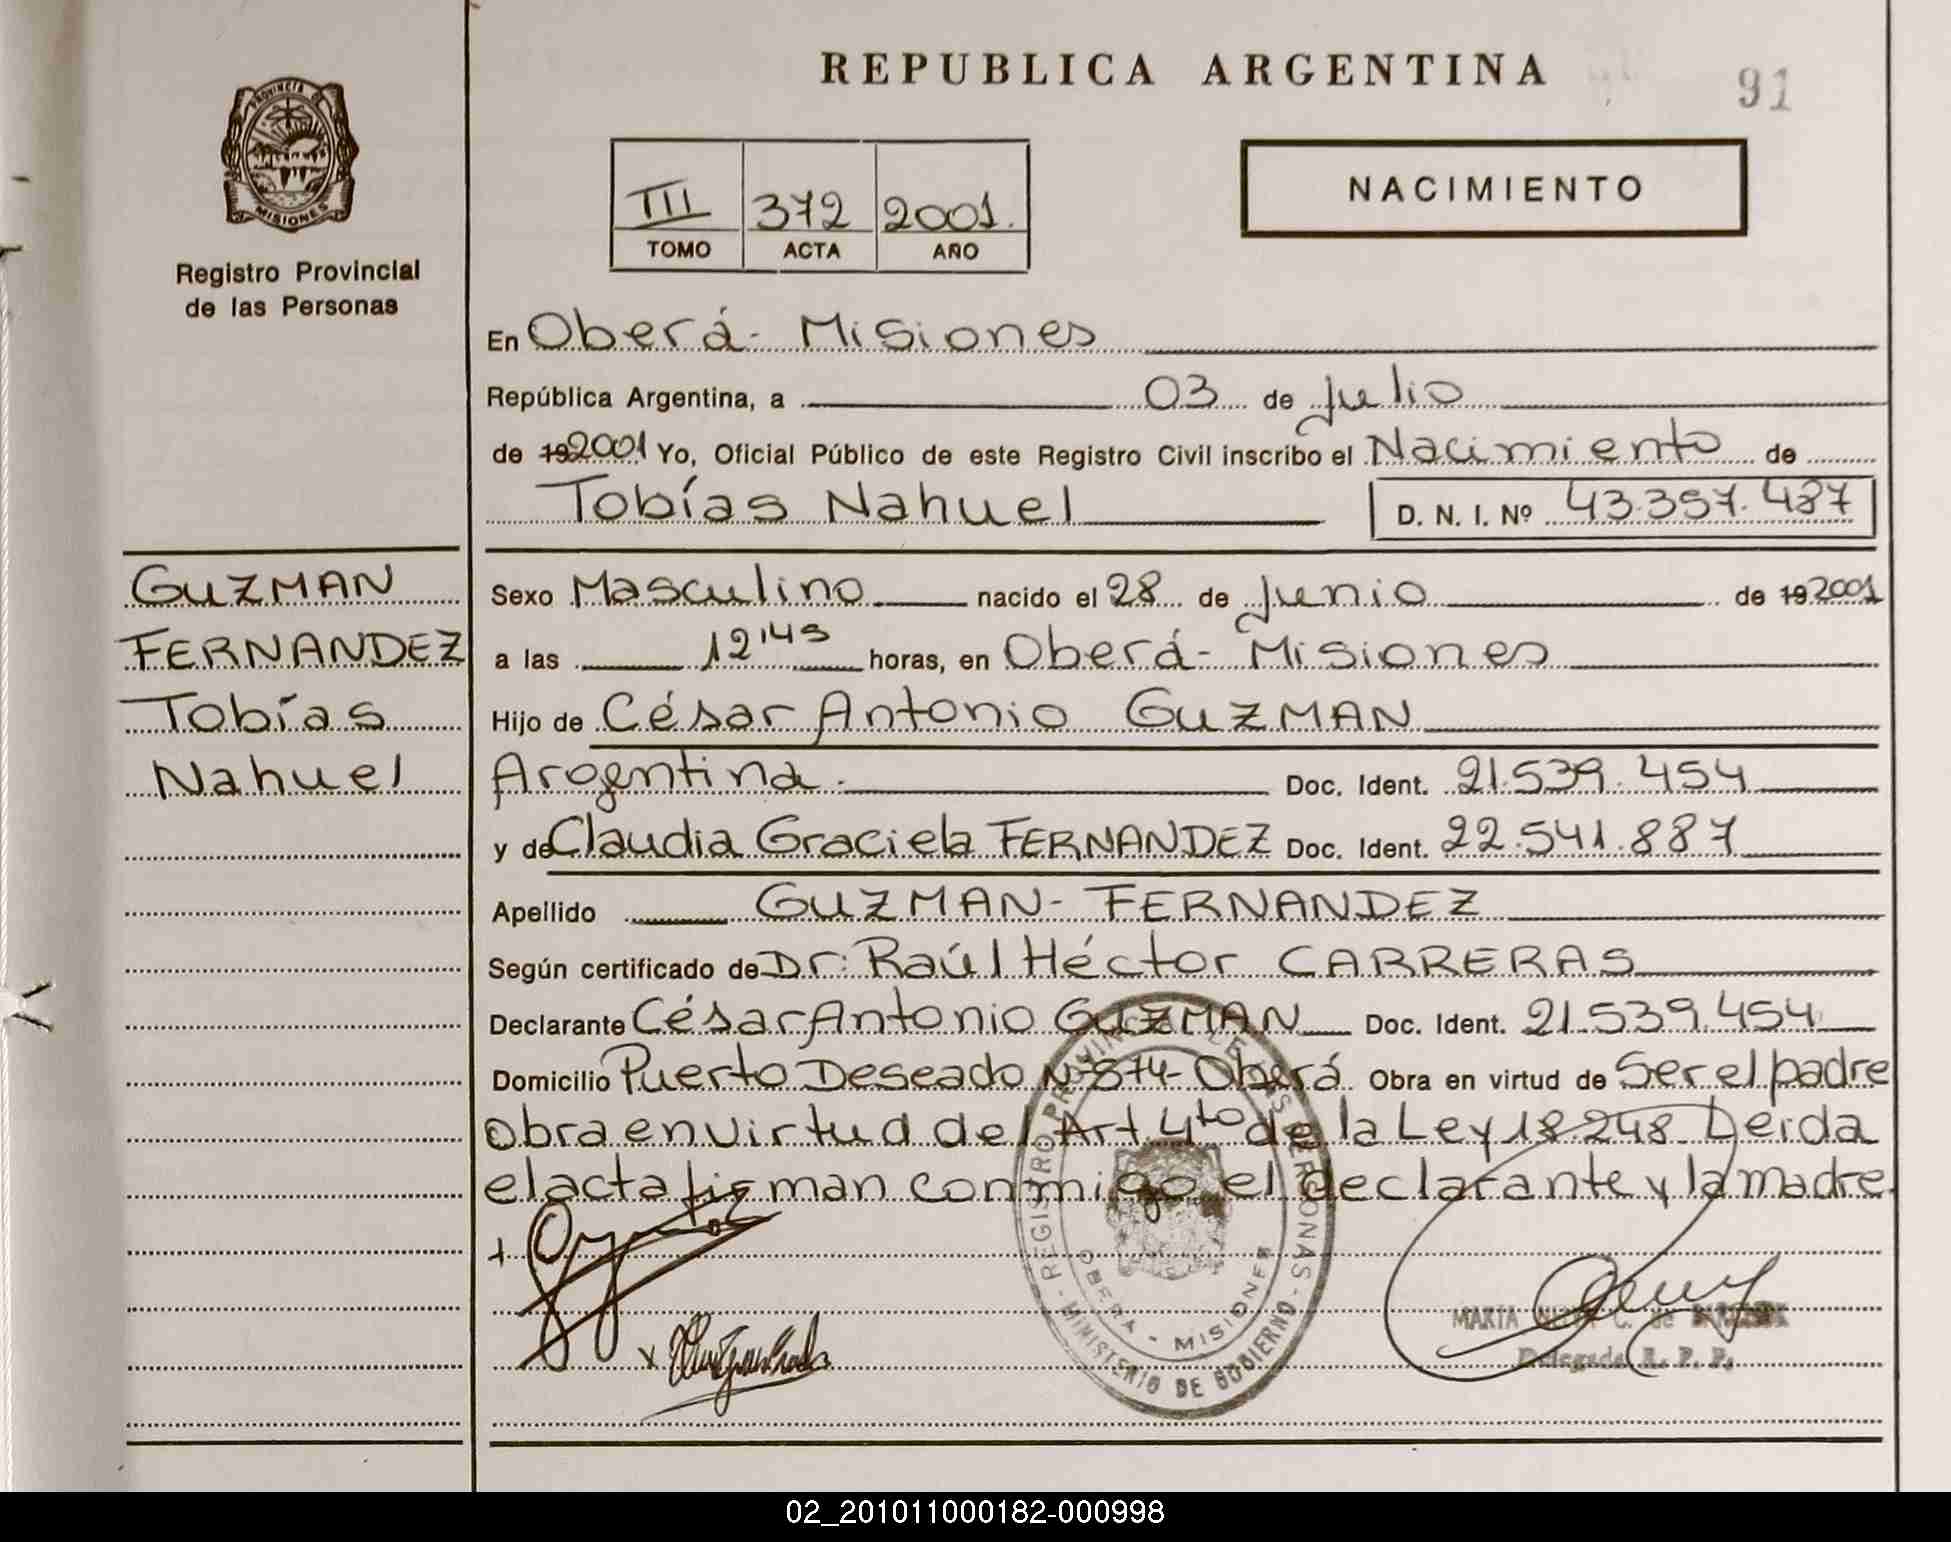 REPUBLICA ARGENTINA
91
PROVINCIA DE
MISIONES
Registro Provincial
de las Personas
III 372 2001.
TOMO ACTA AÑO
NACIMIENTO
En Oberá- Misiones
República Argentina, a 03 de Julio
de 19 2001 Yo, Oficial Público de este Registro Civil inscribo el Nacimiento de
Tobías Nahuel D. N. I. Nº 43.357.487
GUZMAN
FERNANDEZ
Tobías
Nahuel
Sexo Masculino nacido el 28 de Junio de 19 2001
a las 12'45 horas, en Oberá- Misiones
Hijo de César Antonio GUZMAN
Arogentina.- Doc. Ident. 21.539.454
y de Claudia Graciela FERNANDEZ Doc. Ident. 22.541.887
Apellido GUZMAN- FERNANDEZ
Según certificado de Dr: Raúl Héctor CARRERAS
Declarante César Antonio GUZMAN Doc. Ident. 21.539.454
Domicilio Puerto Deseado Nº 874- Oberá Obra en virtud de Ser el padre
Obra en virtud del Art. 4to de la Ley 18.248. Leida
el acta firman conmigo el declarante y la madre.
REGISTRO PROVINCIAL DE LAS PERSONAS
OBERA - MISIONES
MINISTERIO DE GOBIERNO
MARIA C. de
Delegada R. P. P.
02_201011000182-000998